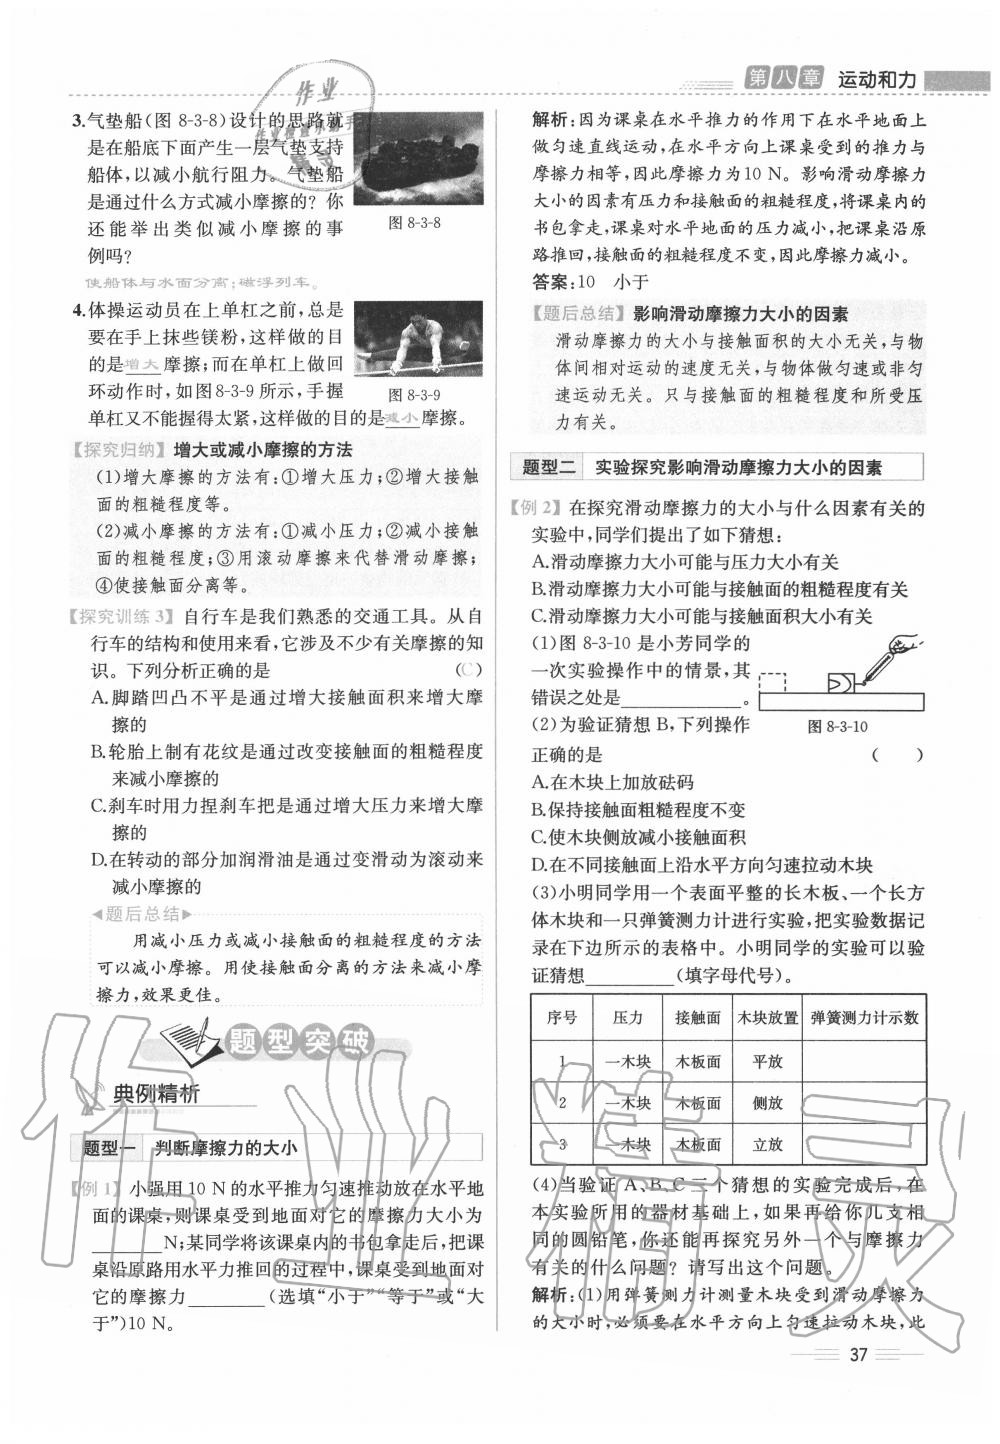 第八章 运动和力
3.气垫船(图 8-3-8)设计的思路就
是在船底下面产生一层气垫支持
船体,以减小航行阻力。气垫船
是通过什么方式减小摩擦的？你
还能举出类似减小摩擦的事
例吗？
图 8-3-8
使船体与水面分离;磁浮列车。
4.体操运动员在上单杠之前,总是
要在手上抹些镁粉,这样做的目
的是增大摩擦;而在单杠上做回
环动作时,如图8-3-9 所示,手握
单杠又不能握得太紧,这样做的目的是减小摩擦。
图 8-3-9
【探究归纳】增大或减小摩擦的方法
(1)增大摩擦的方法有:①增大压力;②增大接触
面的粗糙程度等。
(2)减小摩擦的方法有:①减小压力;②减小接触
面的粗糙程度;③用滚动摩擦来代替滑动摩擦;
④使接触面分离等。
【探究训练 3】 自行车是我们熟悉的交通工具。从自
行车的结构和使用来看,它涉及不少有关摩擦的知
识。下列分析正确的是 (C)
A.脚踏凹凸不平是通过增大接触面积来增大摩
擦的
B.轮胎上制有花纹是通过改变接触面的粗糙程度
来减小摩擦的
C.刹车时用力捏刹车把是通过增大压力来增大摩
擦的
D.在转动的部分加润滑油是通过变滑动为滚动来
减小摩擦的
◀题后总结▶
用减小压力或减小接触面的粗糙程度的方法
可以减小摩擦。用使接触面分离的方法来减小摩
擦力,效果更佳。
题型突破
典例精析
题型一 判断摩擦力的大小
【例 1】 小强用 10 N 的水平推力匀速推动放在水平地
面的课桌,则课桌受到地面对它的摩擦力大小为
______N;某同学将该课桌内的书包拿走后,把课
桌沿原路用水平力推回的过程中,课桌受到地面对
它的摩擦力______(选填“小于”“等于”或“大
于”)10 N。
解析:因为课桌在水平推力的作用下在水平地面上
做匀速直线运动,在水平方向上课桌受到的推力与
摩擦力相等,因此摩擦力为10 N。影响滑动摩擦力
大小的因素有压力和接触面的粗糙程度,将课桌内的
书包拿走,课桌对水平地面的压力减小,把课桌沿原
路推回,接触面的粗糙程度不变,因此摩擦力减小。
答案:10 小于
【题后总结】影响滑动摩擦力大小的因素
滑动摩擦力的大小与接触面积的大小无关,与物
体间相对运动的速度无关,与物体做匀速或非匀
速运动无关。只与接触面的粗糙程度和所受压
力有关。
题型二 实验探究影响滑动摩擦力大小的因素
【例 2】在探究滑动摩擦力的大小与什么因素有关的
实验中,同学们提出了如下猜想:
A.滑动摩擦力大小可能与压力大小有关
B.滑动摩擦力大小可能与接触面的粗糙程度有关
C.滑动摩擦力大小可能与接触面积大小有关
(1)图 8-3-10 是小芳同学的
一次实验操作中的情景,其
错误之处是______。
图 8-3-10
(2)为验证猜想 B,下列操作
正确的是 ( )
A.在木块上加放砝码
B.保持接触面粗糙程度不变
C.使木块侧放减小接触面积
D.在不同接触面上沿水平方向匀速拉动木块
(3)小明同学用一个表面平整的长木板、一个长方
体木块和一只弹簧测力计进行实验,把实验数据记
录在下边所示的表格中。小明同学的实验可以验
证猜想______(填字母代号)。
序号 压力 接触面 木块放置 弹簧测力计示数
1 一木块 木板面 平放
2 一木块 木板面 侧放
3 一木块 木板面 立放
(4)当验证 A、B、C 三个猜想的实验完成后,在
本实验所用的器材基础上,如果再给你几支相
同的圆铅笔,你还能再探究另外一个与摩擦力
有关的什么问题？请写出这个问题。
解析:(1)用弹簧测力计测量木块受到滑动摩擦力
的大小时,必须要在水平方向上匀速拉动木块,此
37
作业精灵